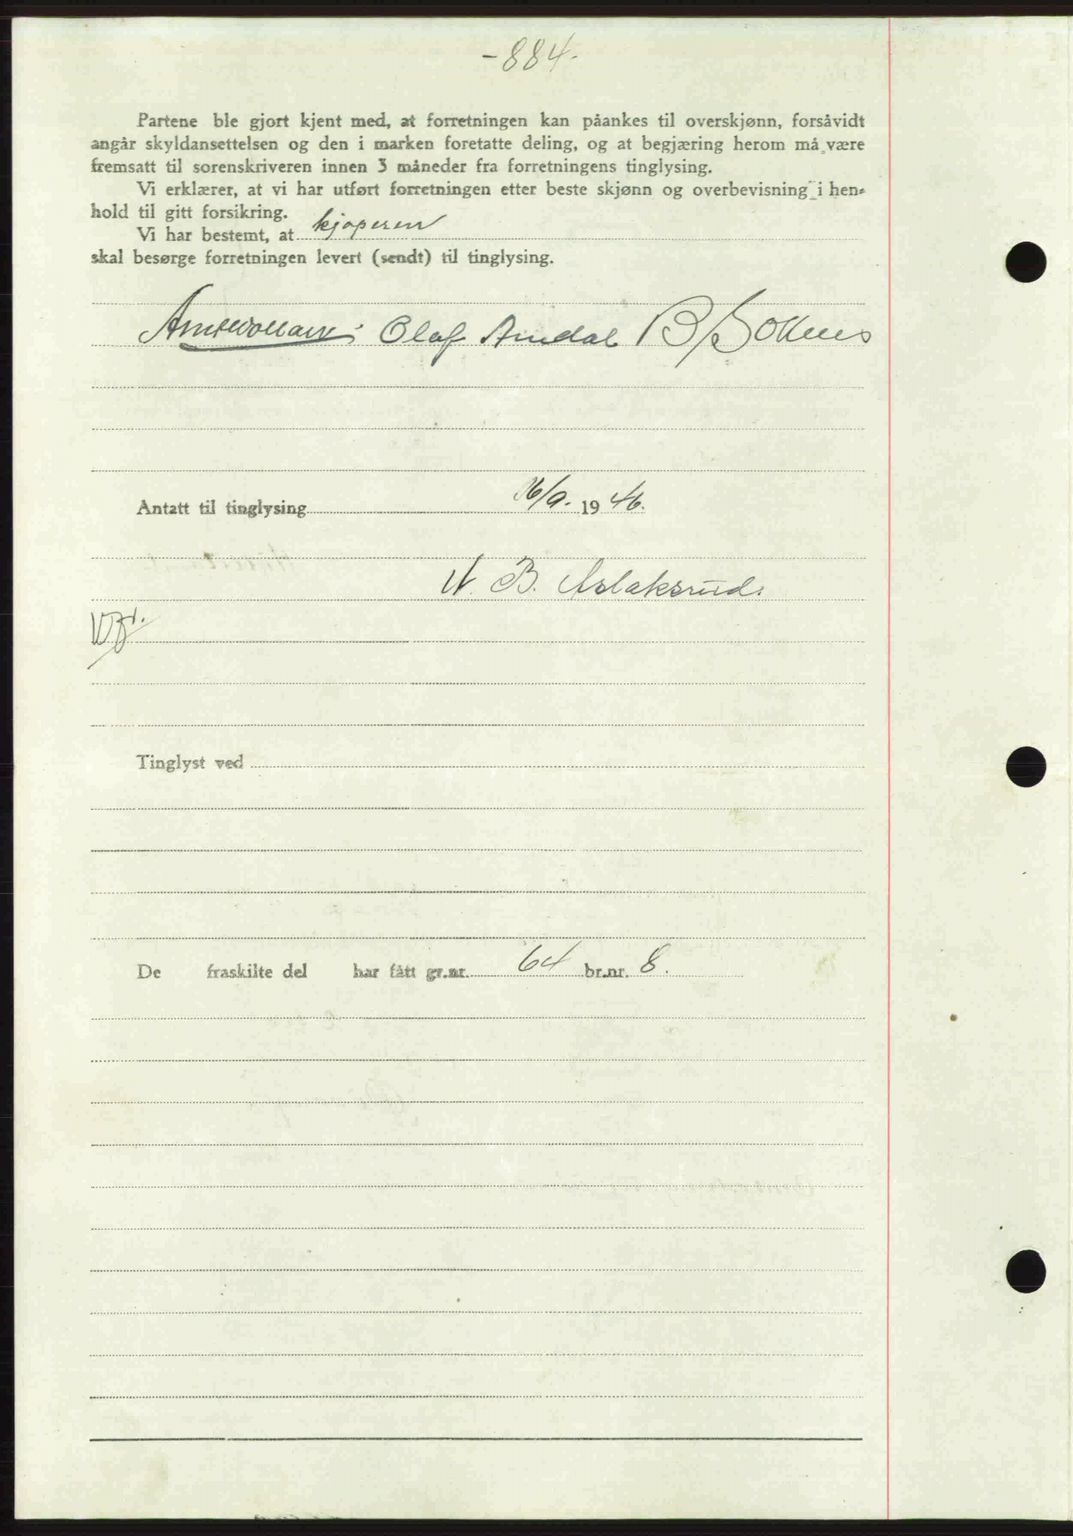 -884-
Partene ble gjort kjent med, at forretningen kan påankes til overskjønn, forsåvidt
angår skyldansettelsen og den i marken foretatte deling, og at begjæring herom må være
fremsatt til sorenskriveren innen 3 måneder fra forretningens tinglysing.
Vi erklærer, at vi har utført forretningen etter beste skjønn og overbevisning i hen-
hold til gitt forsikring.
Vi har bestemt, at kjøperen
skal besørge forretningen levert (sendt) til tinglysing.
Olaf Amdal B/
Antatt til tinglysing 16/9. 1946.
N. B. Aslaksrud.
Tinglyst ved
De fraskilte del har fått gr.nr. 64 br.nr. 8.